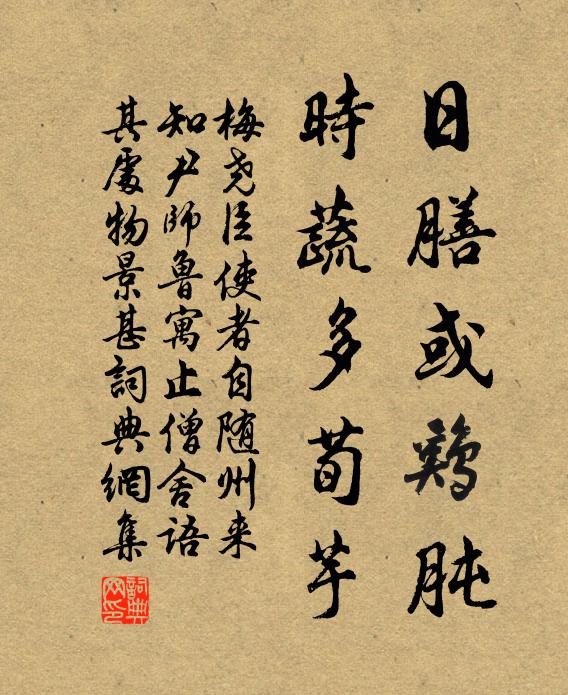 日膳或鷄肫
時蔬多荀芋
梅尧臣使者自随州来
知尹師魯寓止僧舍語
其處物景甚詞典網集
詞典网印